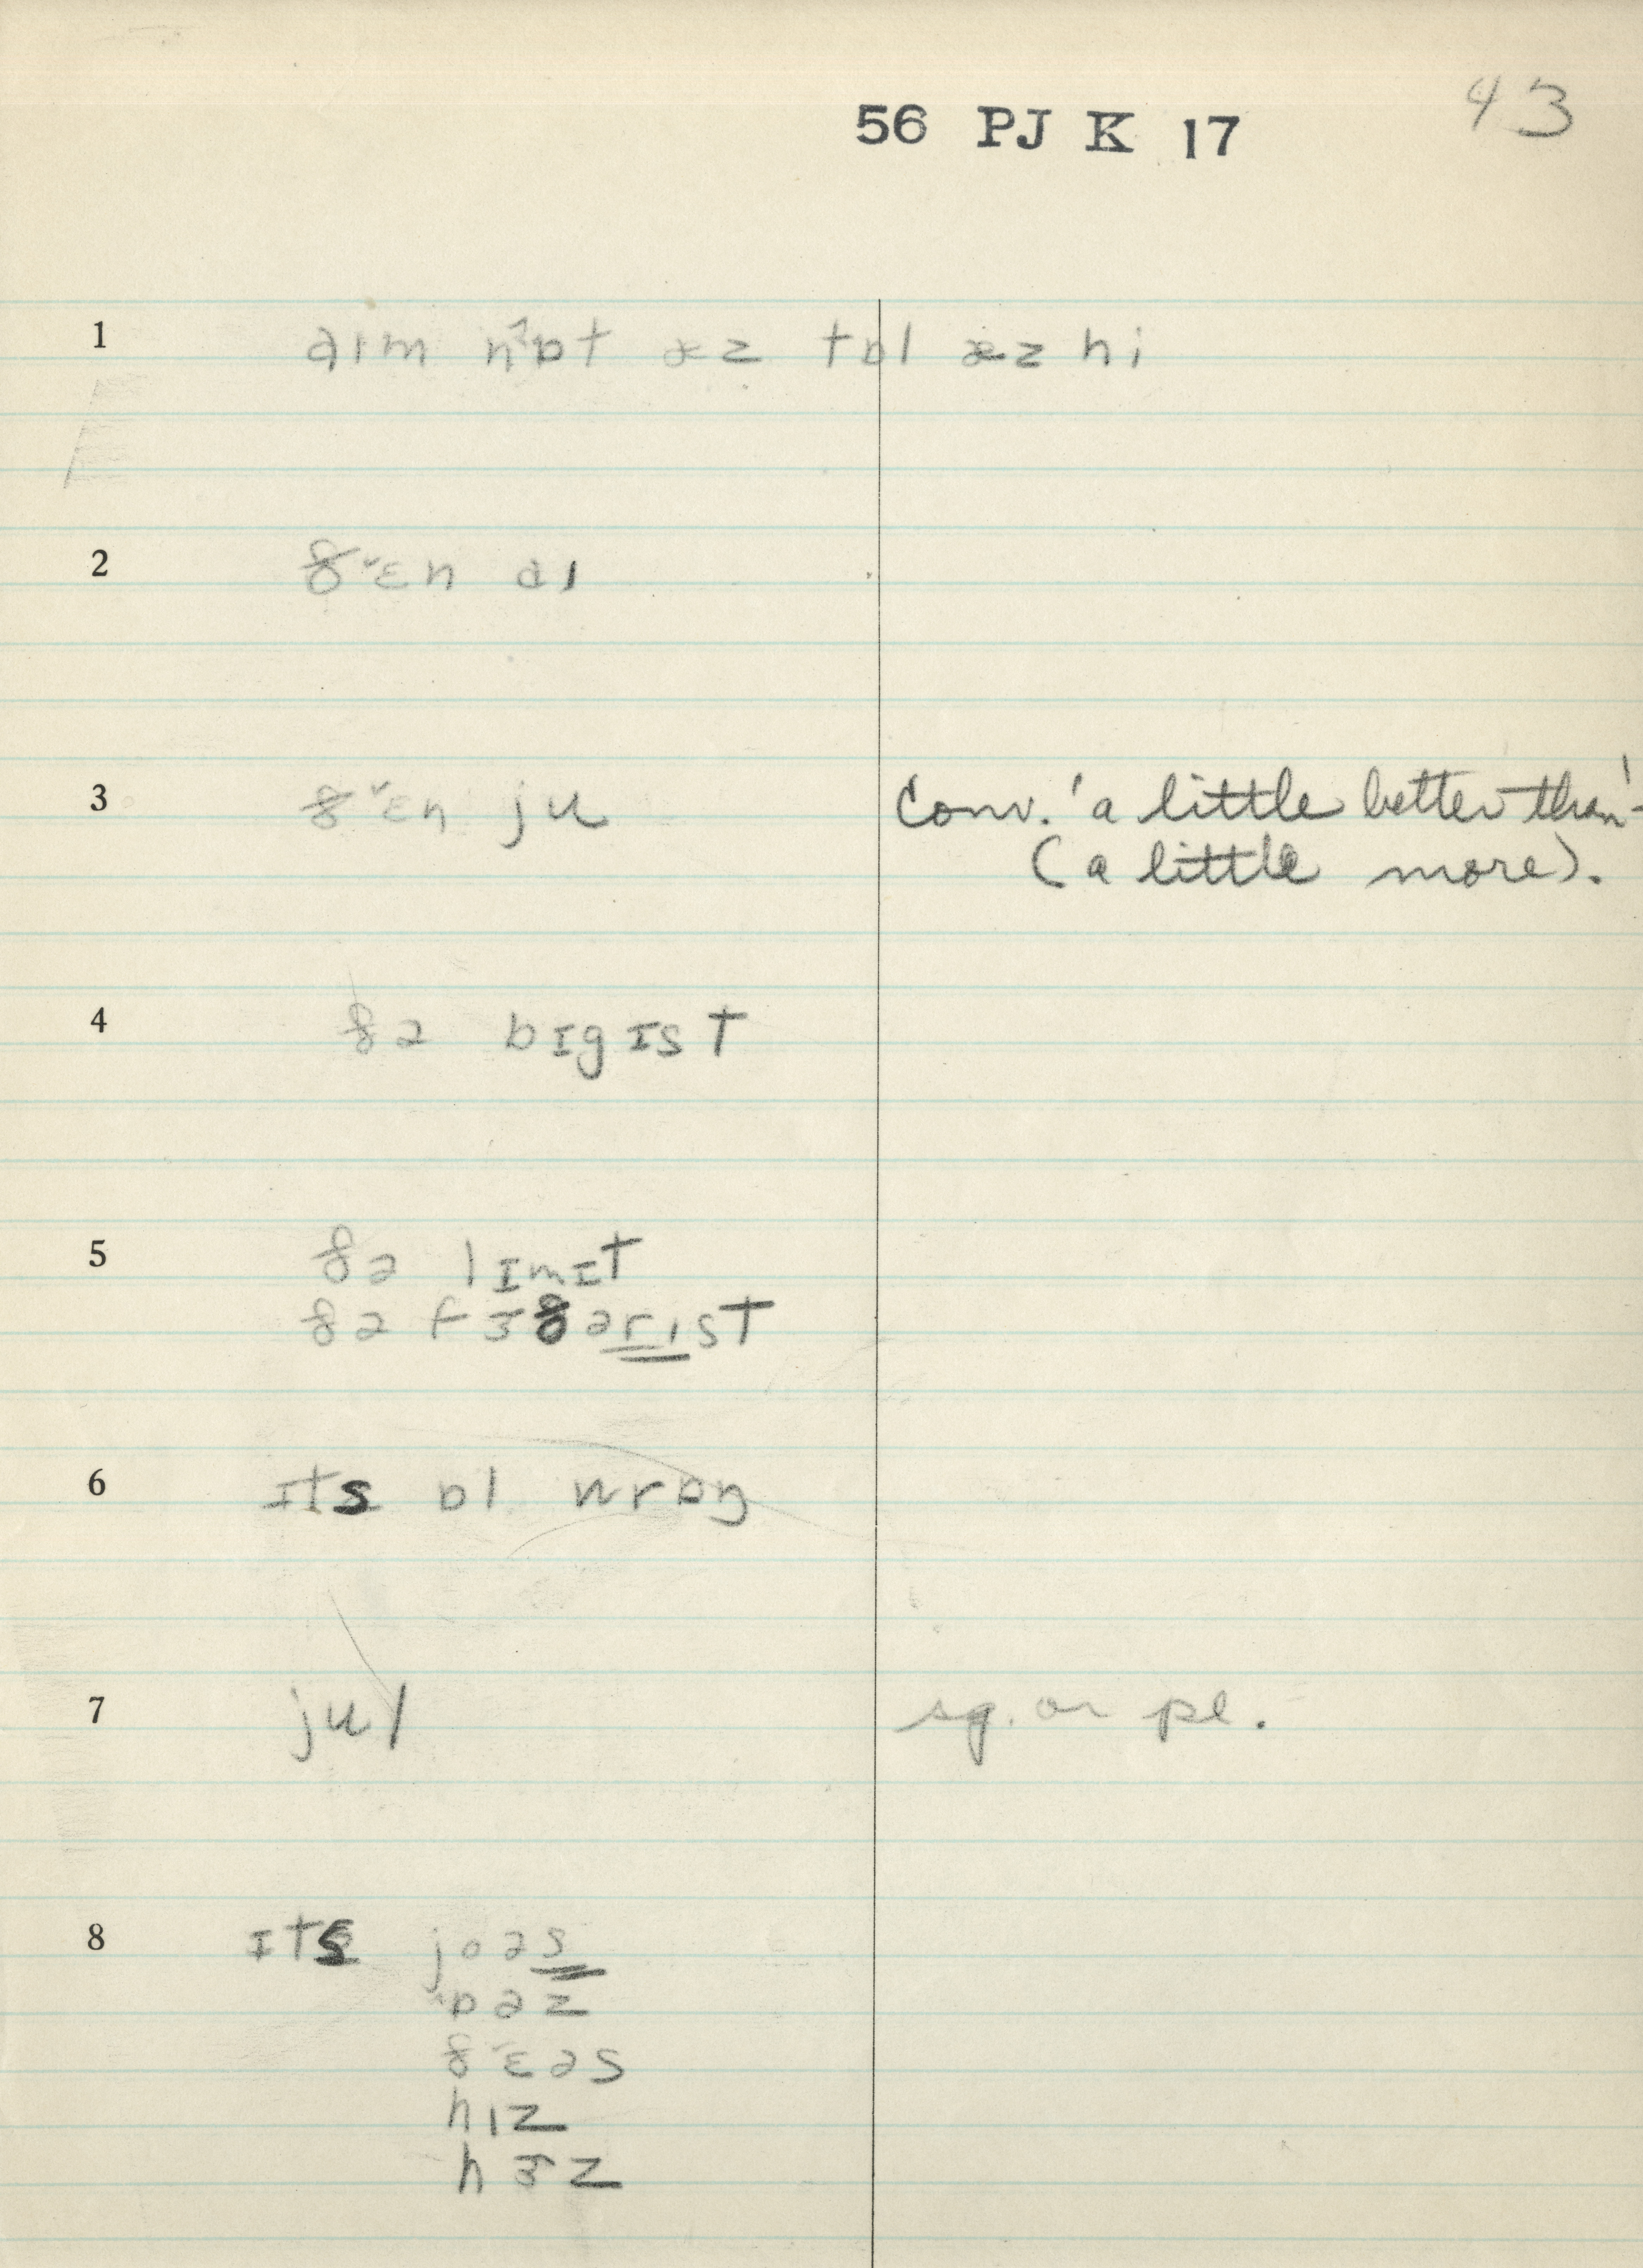 56 PJ K 17
43
1 aɪm nˀɒt æz tɒl æz hi
2 ðˇɛn aɪ
3 ðˇɛn ju Conv. 'a little better than'-
(a little more).
4 ðə bɪgɪst
5 ðə lɪmɪt
ðə fɜðərɪst
6 ɪts ɒl wrɒŋ
7 jul sg. or pl.
8 ɪts joəs
ˆɒəz
ðˇɛəs
hɪz
hɜz